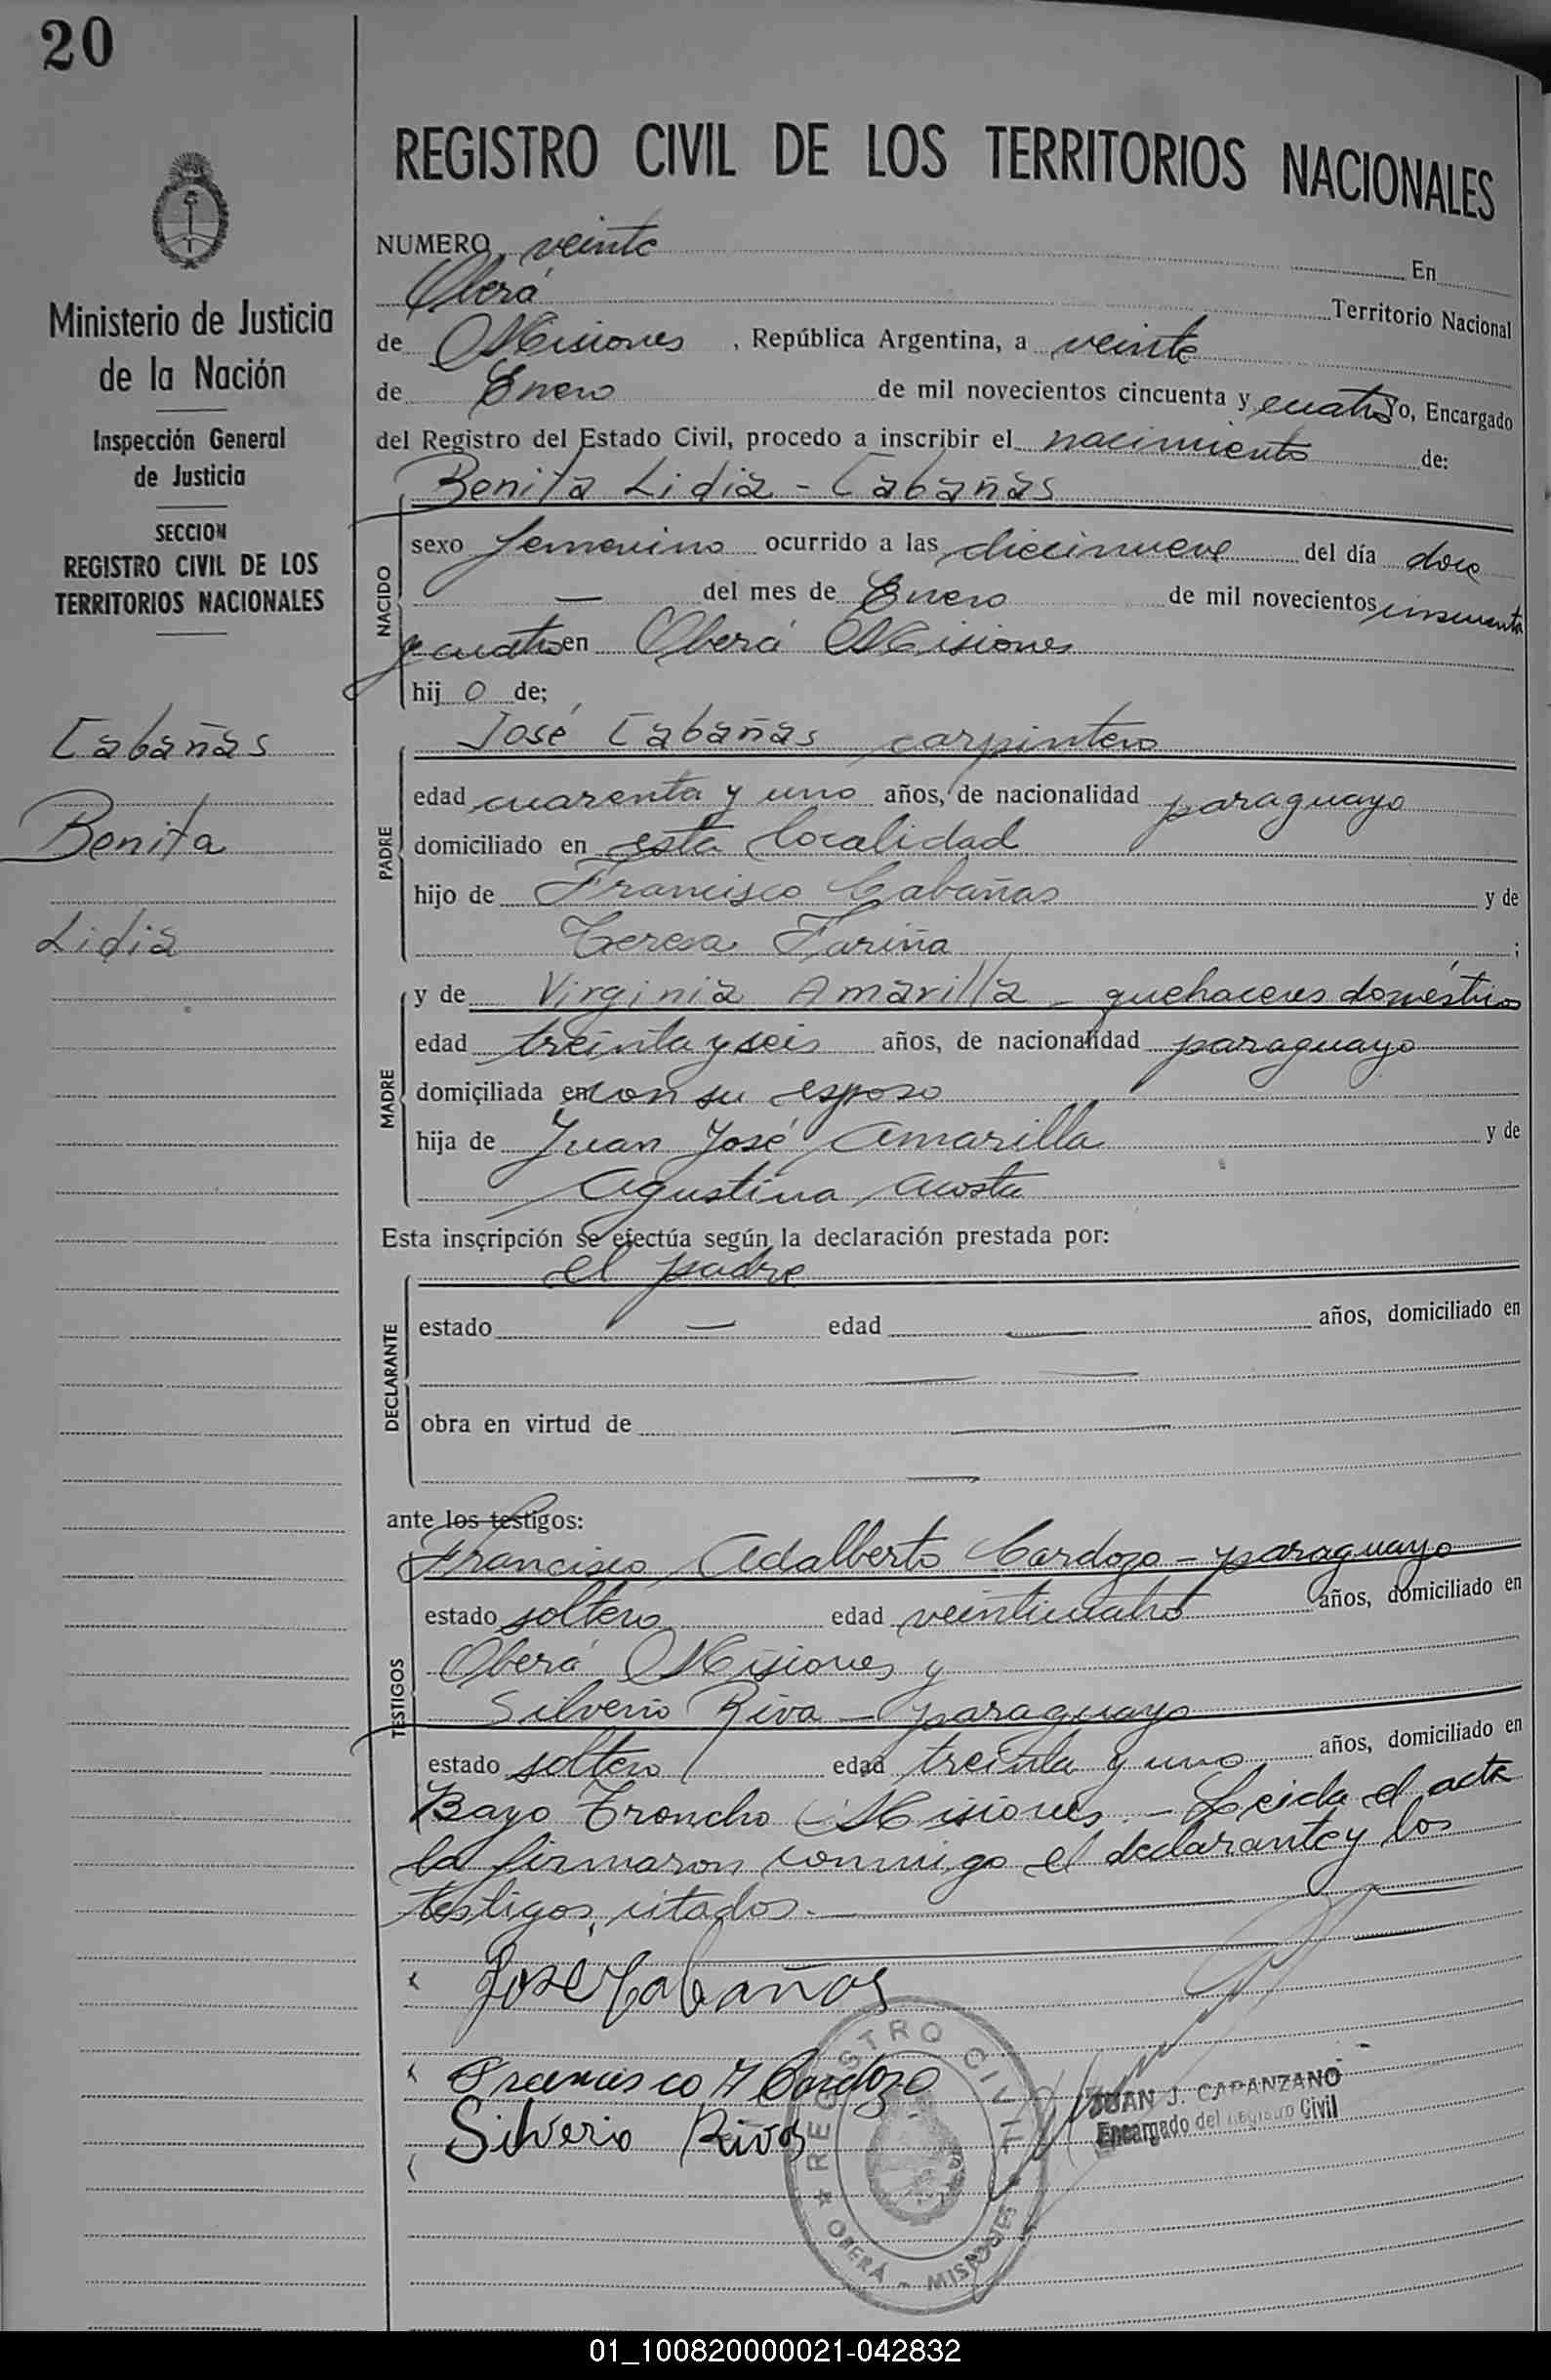 20
REGISTRO CIVIL DE LOS TERRITORIOS NACIONALES
Ministerio de Justicia
de la Nación
Inspección General
de Justicia
SECCION
REGISTRO CIVIL DE LOS
TERRITORIOS NACIONALES
Cabañas
Benita
Lidia
NUMERO veinte En
Oberá Territorio Nacional
de Misiones , República Argentina, a veinte
de Enero de mil novecientos cincuenta y cuatro Yo, Encargado
del Registro del Estado Civil, procedo a inscribir el nacimiento de:
Benita Lidia - Cabañas
NACIDO
sexo femenino ocurrido a las diecinueve del día doce
— del mes de Enero de mil novecientos cincuenta
y cuatro en Oberá Misiones
hij o de;
José Cabañas carpintero
PADRE
edad cuarenta y uno años, de nacionalidad paraguayo
domiciliado en esta localidad
hijo de Francisco Cabañas y de
Teresa Fariña ;
MADRE
y de Virginia Amarilla - quehaceres domésticos
edad treinta y seis años, de nacionalidad paraguayo
domiciliada en con su esposo
hija de Juan José Amarilla y de
Agustina Acosta
Esta inscripción se efectúa según la declaración prestada por:
el padre
DECLARANTE
estado — edad — años, domiciliado en
obra en virtud de
ante los testigos:
Francisco Adalberto Cardozo - paraguayo
TESTIGOS
estado soltero edad veinticuatro años, domiciliado en
Oberá Misiones y
Silverio Riva - paraguayo
estado soltero edad treinta y uno años, domiciliado en
Bayo Troncho Misiones - Leida el acta
la firmaron conmigo el declarante y los
testigos citados.
José Cabañas
Francisco A Cardozo
Silverio Rivas
REGISTRO CIVIL
OBERÁ - MISIONES
JUAN J. CAPANZANO
Encargado del Registro Civil
01_100820000021-042832